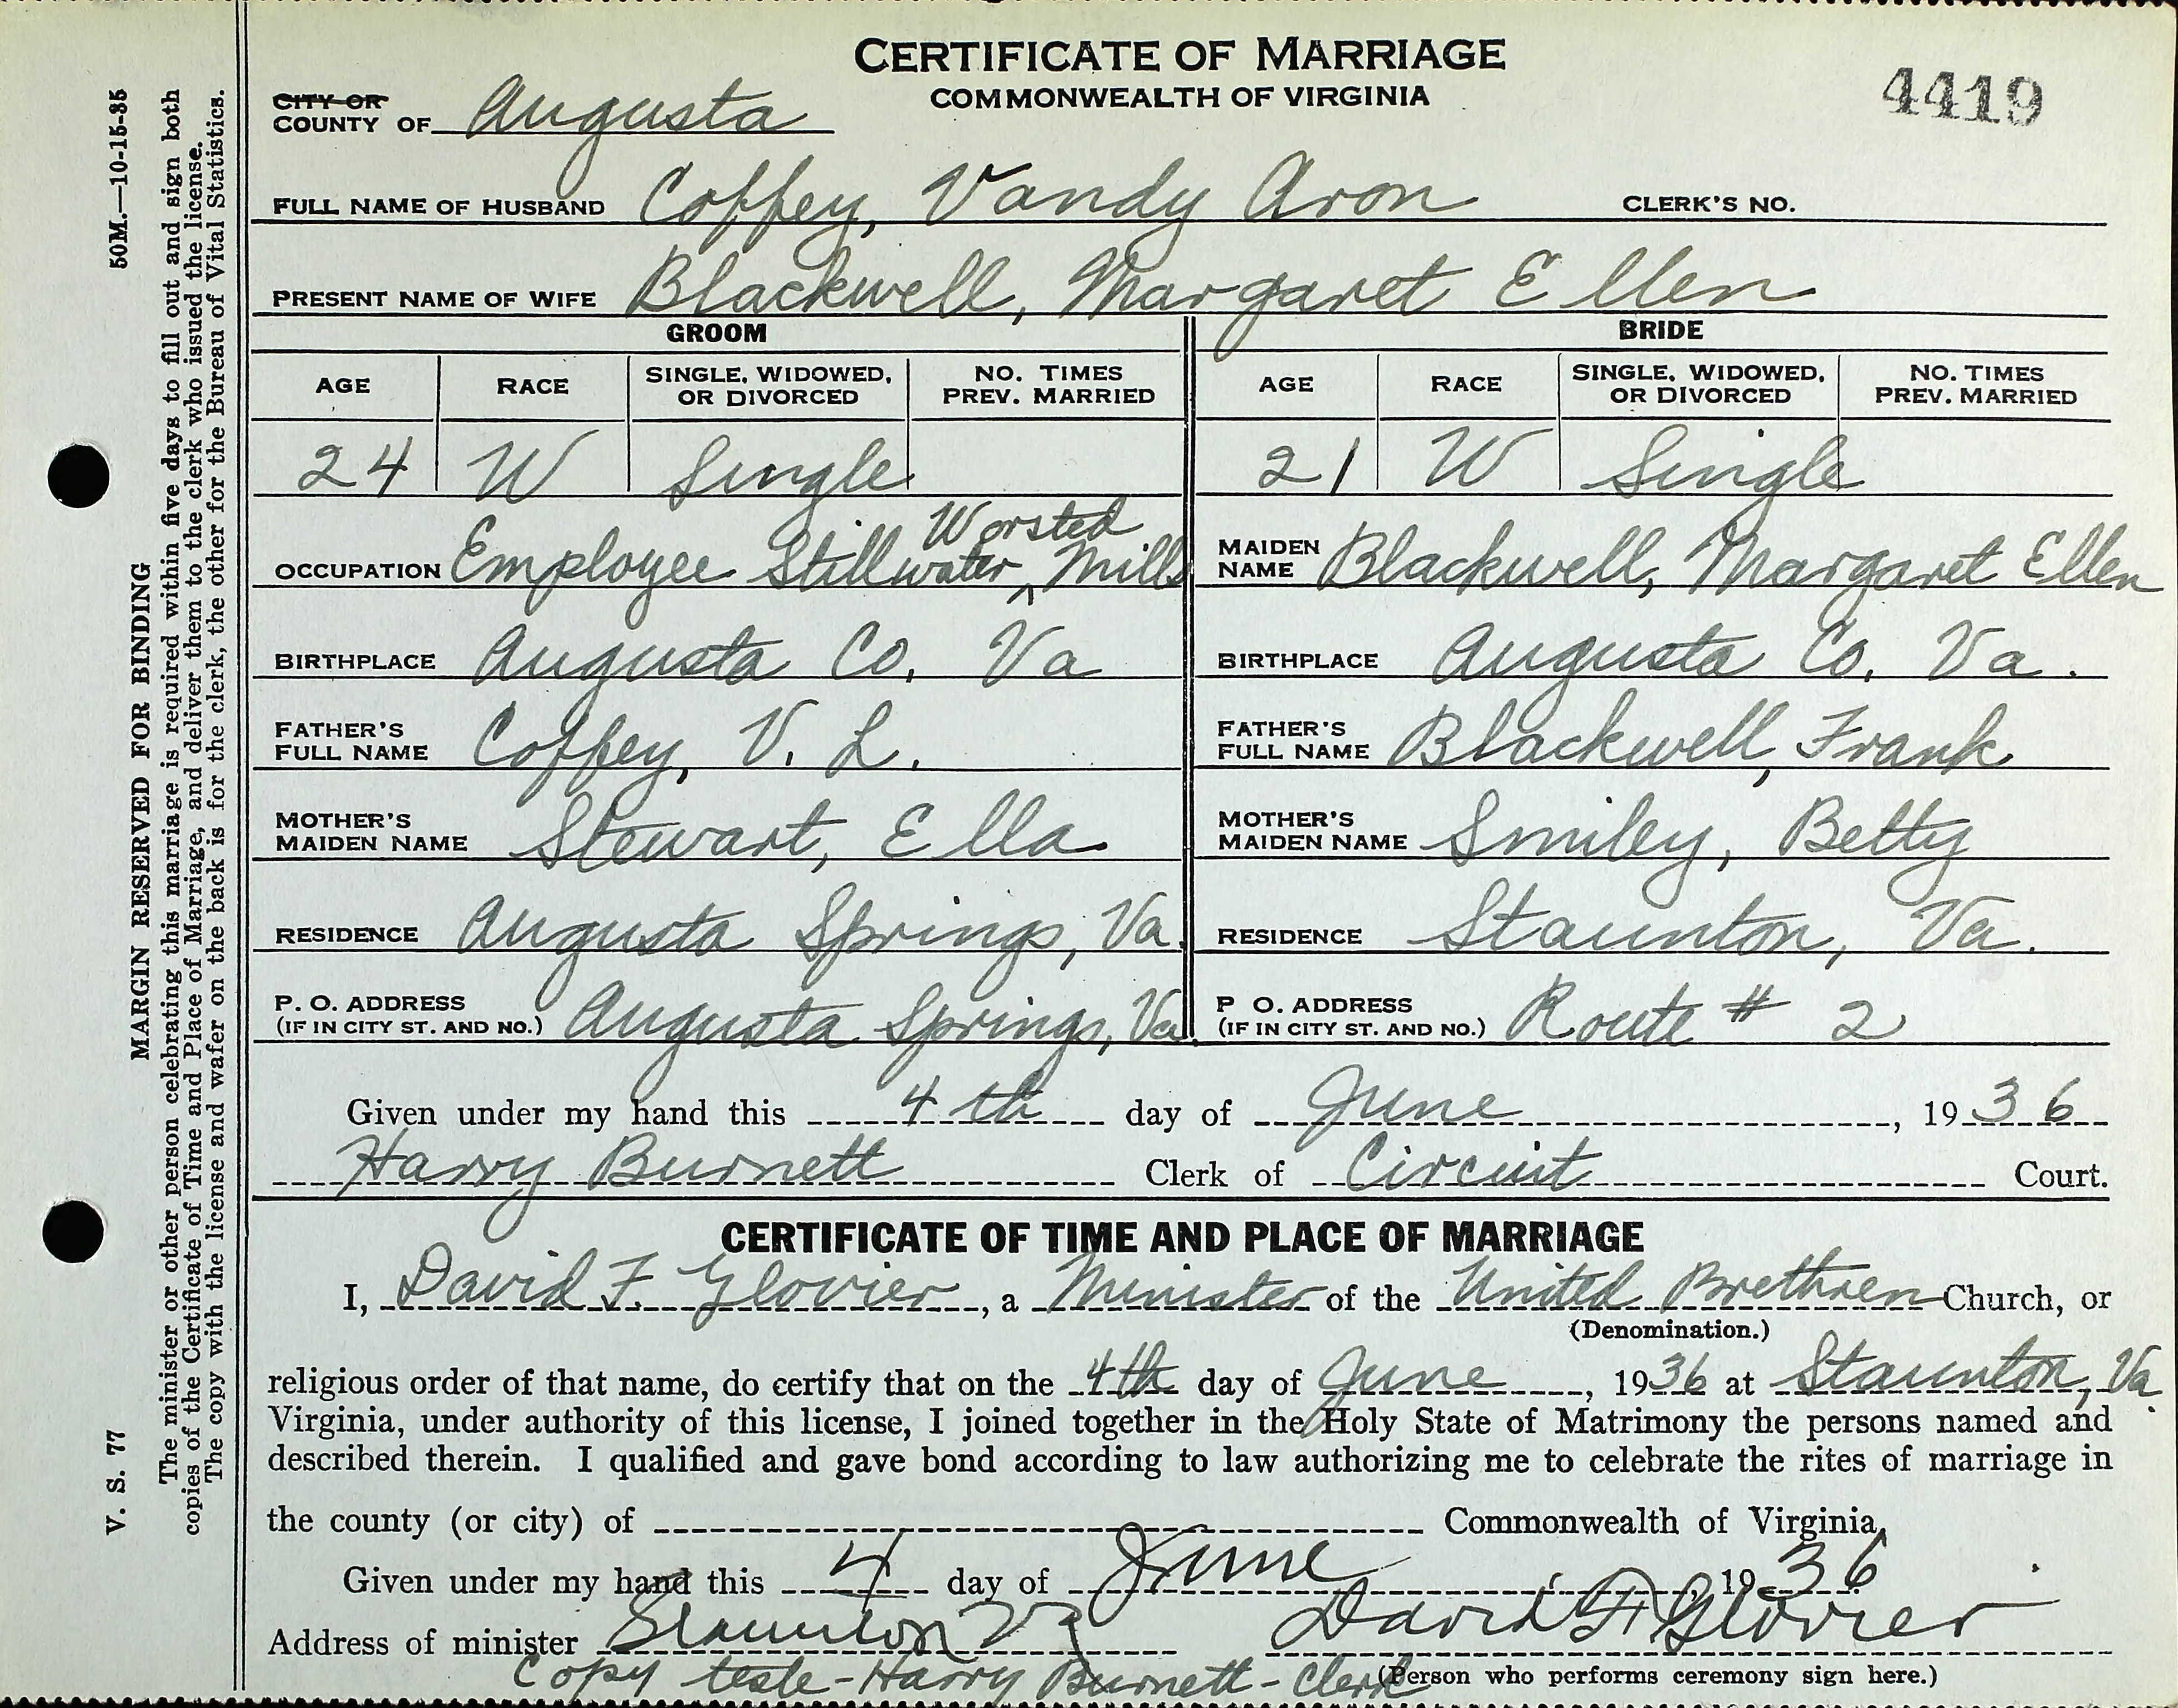 CERTIFICATE OF MARRIAGE
COMMONWEALTH OF VIRGINIA
4419
CITY OR
COUNTY OF Augusta
FULL NAME OF HUSBAND Coffey, Vandy Aron CLERK'S NO.
PRESENT NAME OF WIFE Blackwell, Margaret Ellen
GROOM BRIDE
AGE RACE SINGLE, WIDOWED, OR DIVORCED NO. TIMES PREV. MARRIED AGE RACE SINGLE, WIDOWED, OR DIVORCED NO. TIMES PREV. MARRIED
24 W Single 21 W Single
OCCUPATION Employee Stillwater ^ Worsted Mills MAIDEN NAME Blackwell, Margaret Ellen
BIRTHPLACE Augusta Co, Va BIRTHPLACE Augusta Co. Va.
FATHER'S FULL NAME Coffey, V. L. FATHER'S FULL NAME Blackwell, Frank
MOTHER'S MAIDEN NAME Stewart, Ella MOTHER'S MAIDEN NAME Smiley, Betty
RESIDENCE Augusta Springs, Va. RESIDENCE Staunton, Va.
P. O. ADDRESS (IF IN CITY ST. AND NO.) Augusta Springs, Va. P O. ADDRESS (IF IN CITY ST. AND NO.) Route # 2
Given under my hand this 4th day of June, 1936
Harry Burnett Clerk of Circuit Court.
CERTIFICATE OF TIME AND PLACE OF MARRIAGE
I, David F. Glovier, a Minister of the United Brethren Church, or
(Denomination.)
religious order of that name, do certify that on the 4th day of June, 1936 at Staunton, Va.
Virginia, under authority of this license, I joined together in the Holy State of Matrimony the persons named and
described therein. I qualified and gave bond according to law authorizing me to celebrate the rites of marriage in
the county (or city) of Commonwealth of Virginia,
Given under my hand this 4 day of June, 1936
Address of minister Staunton Va David F. Glovier
Copy teste - Harry Burnett - Clerk (Person who performs ceremony sign here.)
V. S. 77 MARGIN RESERVED FOR BINDING 50M.—10-15-35
The minister or other person celebrating this marriage is required within five days to fill out and sign both
copies of the Certificate of Time and Place of Marriage, and deliver them to the clerk who issued the license.
The copy with the license and wafer on the back is for the clerk, the other for the Bureau of Vital Statistics.